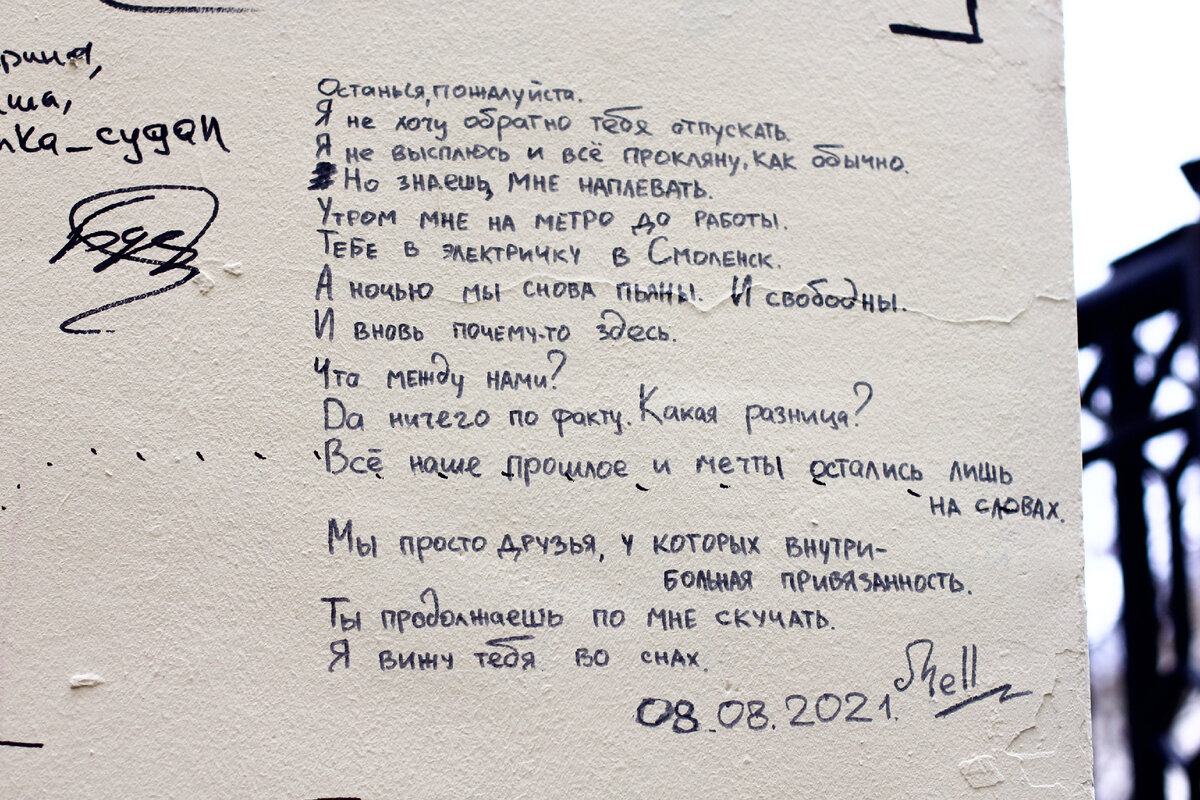 Останься, пожалуйста.
Я не хочу обратно тебя отпускать.
Я не высплюсь и всё прокляну, как обычно.
Но знаешь, мне наплевать.
Утром мне на метро до работы.
Тебе в электричку в Смоленск.
А ночью мы снова пьяны. И свободны.
И вновь почему-то здесь.
Что между нами?
Да ничего по факту. Какая разница?
Всё наше прошлое и мечты остались лишь
на словах.
Мы просто друзья, у которых внутри-
больная привязанность.
Ты продолжаешь по мне скучать.
Я вижу тебя во снах.
08.08.2021.
Shell